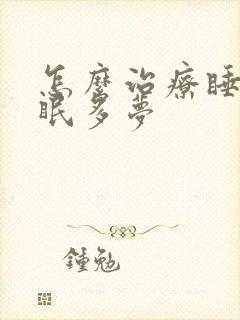 怎麼治療睡
眠多夢
鍾勉